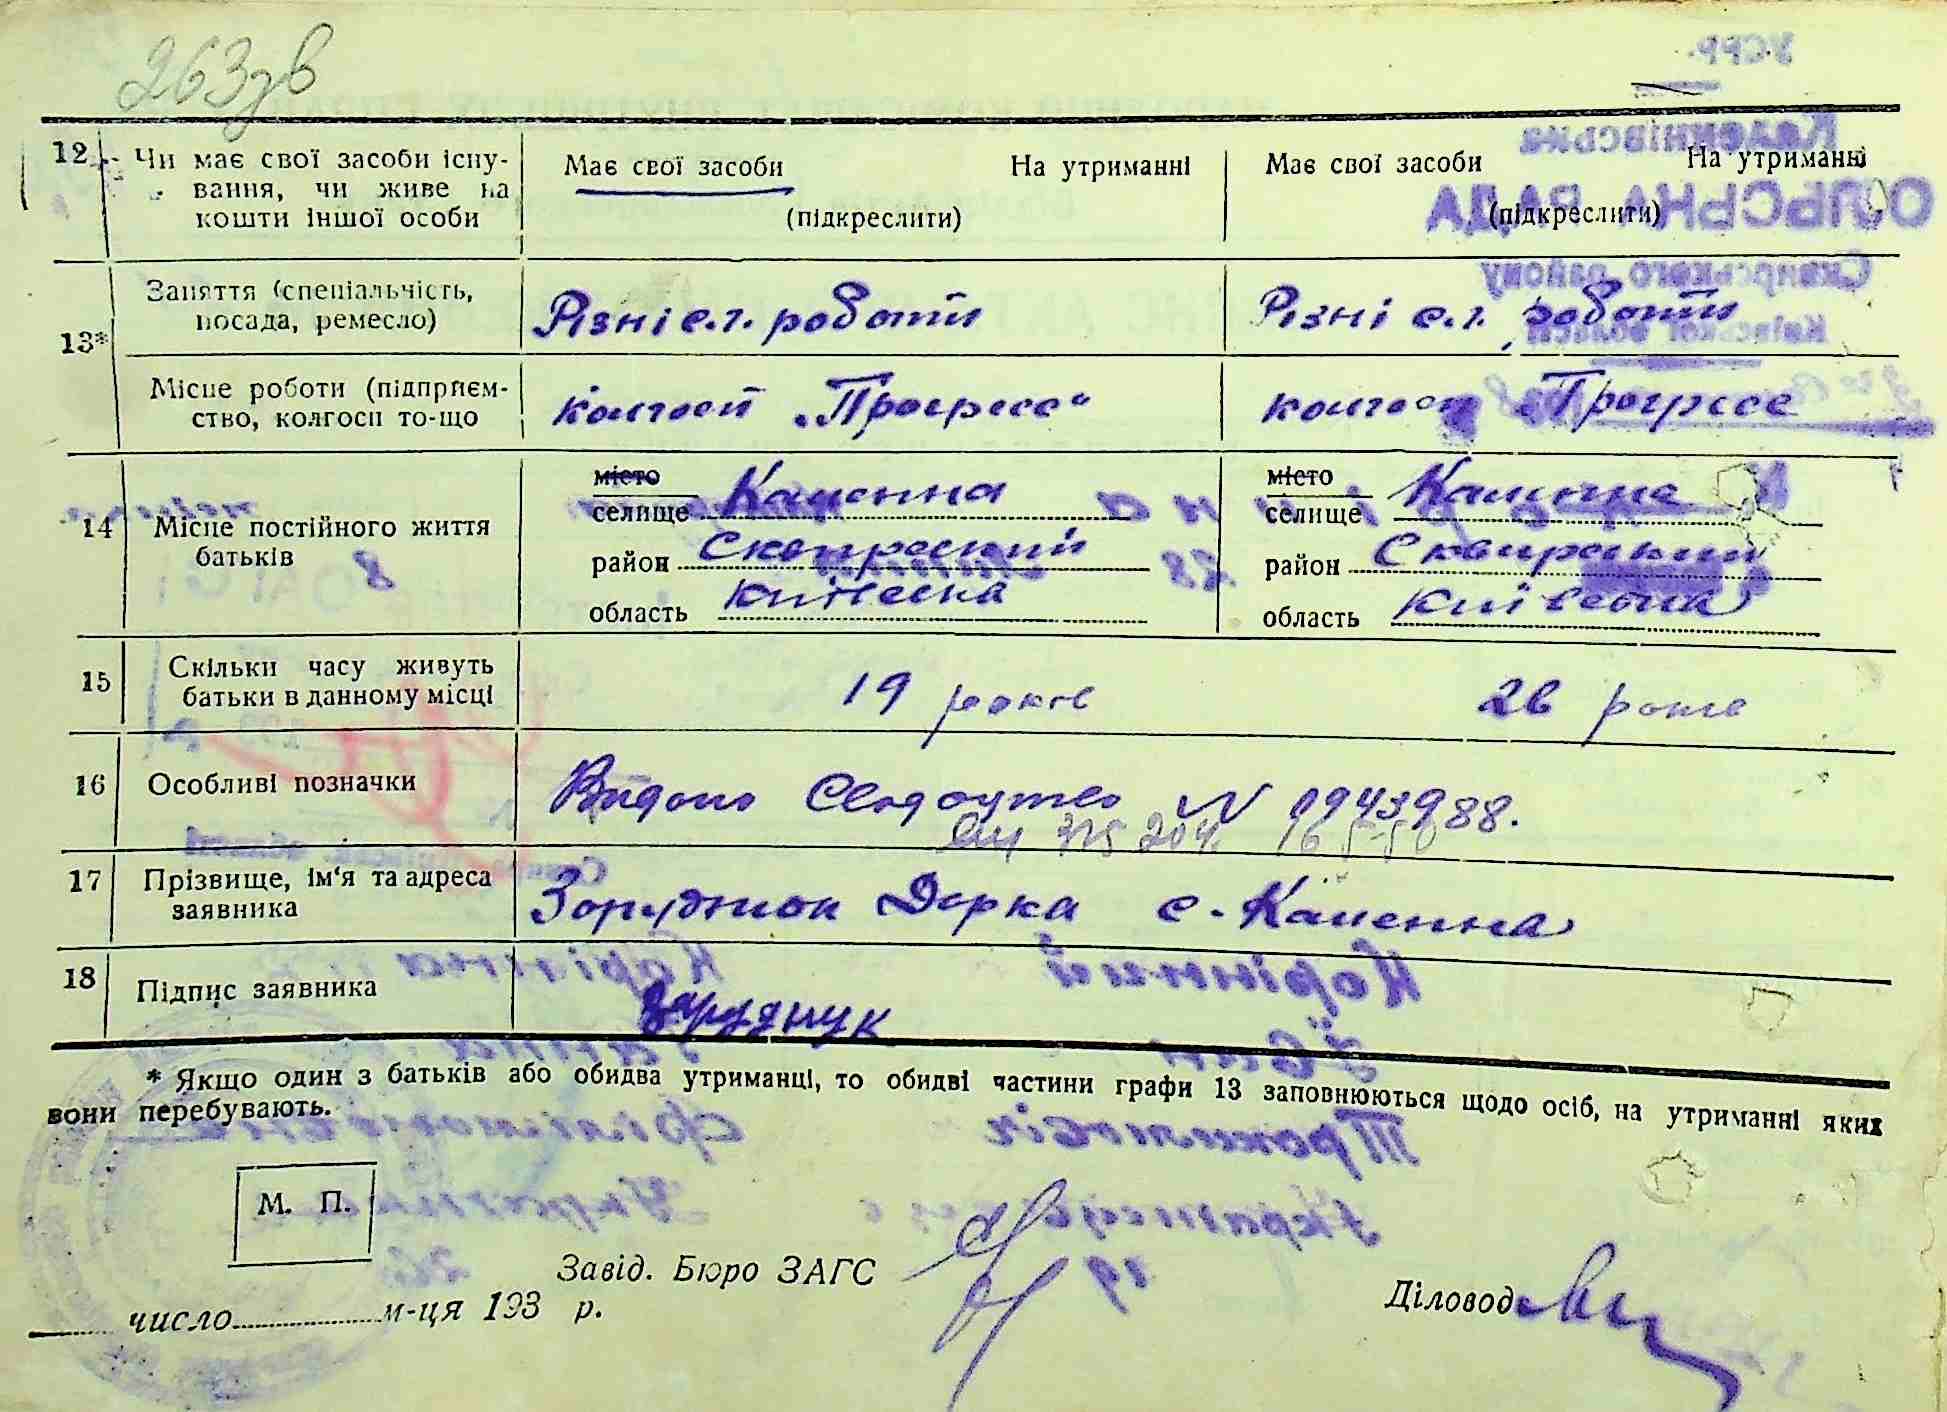 263зв
12 Чи має свої засоби існу-
вання, чи живе на
кошти іншої особи
Має свої засоби На утриманні
(підкреслити)
Має свої засоби На утриманні
(підкреслити)
13*
Заняття (спеціальність,
посада, ремесло)
Різні с.г. роботи
Різні с.г. роботи
Місце роботи (підприєм-
ство, колгосп то-що
колгосп „Прогресс“
колгосп „Прогресс
14 Місце постійного життя
батьків
місто
селище Каленна
район Сквирський
область Київська
місто
селище Каленна
район Сквирський
область Київська
15 Скільки часу живуть
батьки в данному місці
19 років
26 років
16 Особливі позначки
Видано Свідоцтво N 0943988.
17 Прізвище, ім‘я та адреса
заявника
Зоруднюк Дорка с. Каленна
18 Підпис заявника
Заруднук
* Якщо один з батьків або обидва утриманці, то обидві частини графи 13 заповнюються щодо осіб, на утриманні яких
вони перебувають.
М. П.
Завід. Бюро ЗАГС
Діловод
число м-ця 193 р.